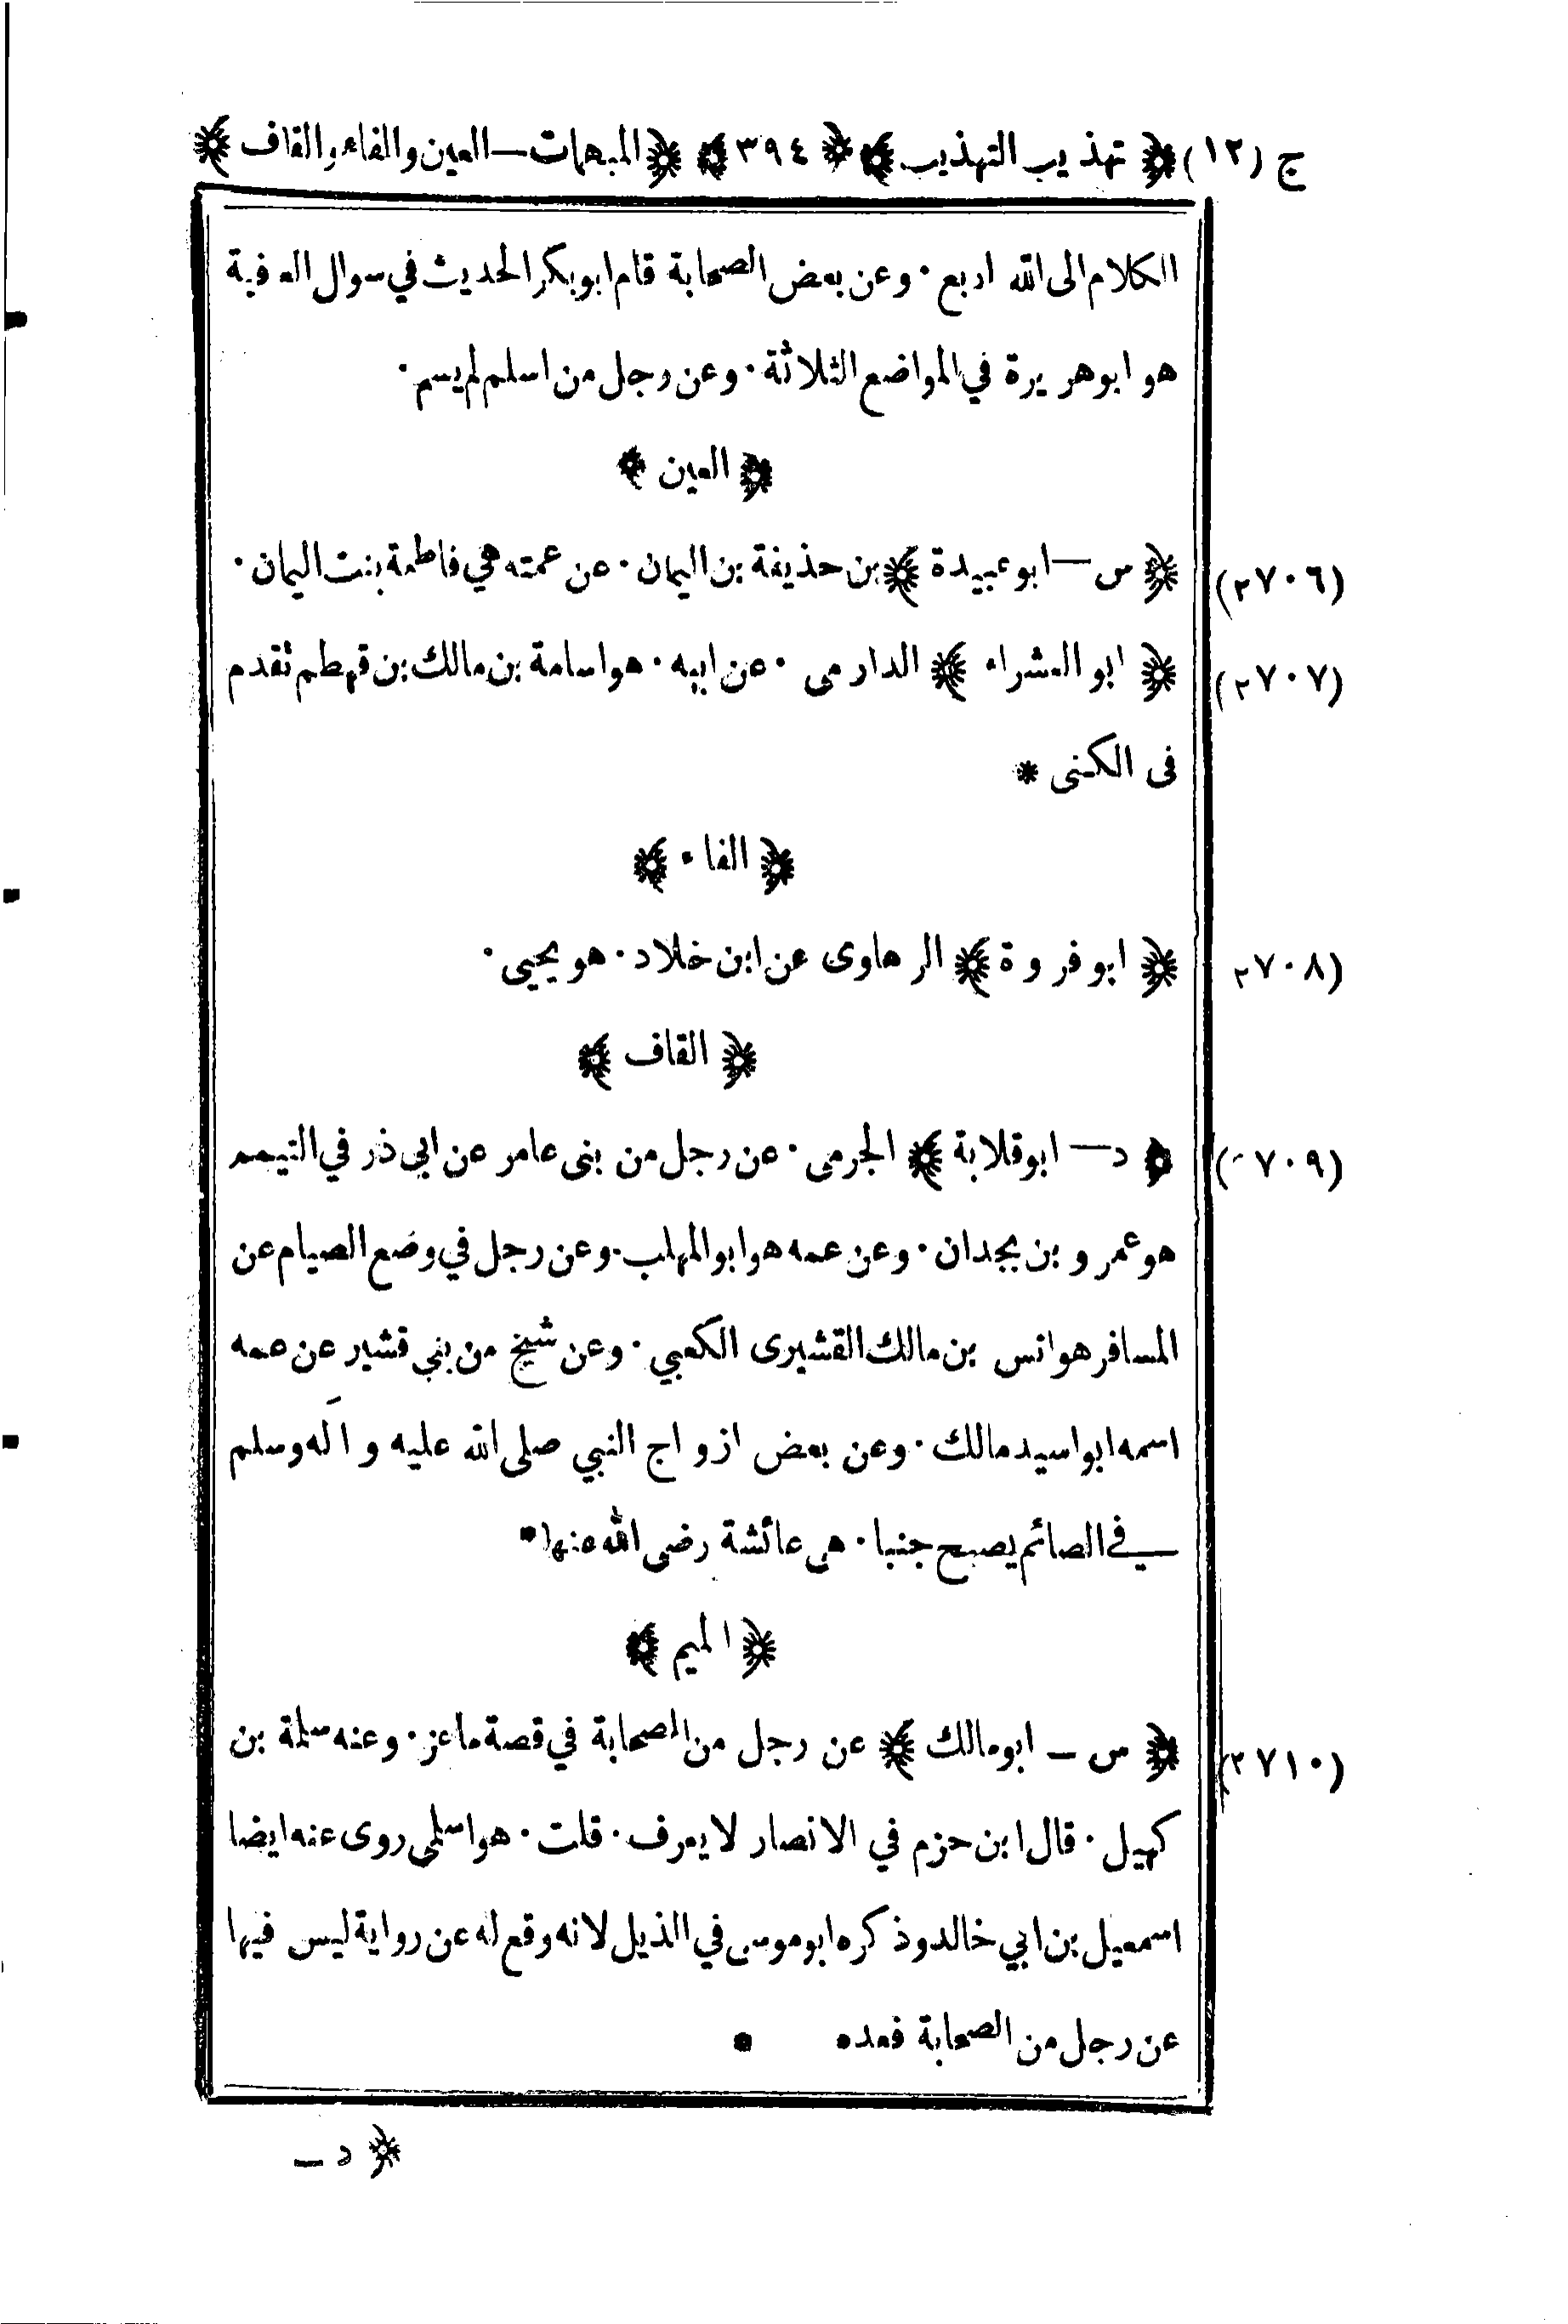 ج (١٢) ﴿ تهذيب التهذيب ﴾ ﴿ ٣٩٤ ﴾ ﴿ المبهمات — العين والفاء والقاف ﴾
الكلام الى الله اربع ۰ وعن بعض الصحابة قام ابو بكر الحديث في سوال العافية
هو ابو هريرة في المواضع الثلاثة ۰ وعن رجل من اسلم لم يسم ۰
﴿ العين ﴾
(٢٧٠٦) ﴿ س — ابو عبيدة ﴾ بن حذيفة بن اليمان ۰ عن عمته هي فاطمة بنت اليمان ۰
(٢٧٠٧) ﴿ ابو العشراء ﴾ الدارمى ۰ عن ابيه ۰ هو اسامة بن مالك بن قهطم تقدم
فى الكنى *
﴿ الفاء ﴾
(٢٧٠٨ ﴿ ابو فروة ﴾ الرهاوى عن ابن خلاد ۰ هو يحيى ۰
﴿ القاف ﴾
(٢٧٠٩) ﴿ د — ابو قلابة ﴾ الجرمى ۰ عن رجل من بنى عامر عن ابي ذر في التيمم
هو عمرو بن بجدان ۰ وعن عمه هو ابو المهلب ۰ وعن رجل في وضع الصيام عن
المسافر هو انس بن مالك القشيرى الكعبي ۰ وعن شيخ من بني قشير عن عمه
اسمه ابو اسيد مالك ۰ وعن بعض ازواج النبي صلى الله عليه وآله وسلم
في الصائم يصبح جنبا ۰ هى عائشة رضى الله عنها *
﴿ الميم ﴾
(٢٧١٠) ﴿ س — ابو مالك ﴾ عن رجل من الصحابة في قصة ماعز ۰ وعنه سلمة بن
كهيل ۰ قال ابن حزم في الانصار لا يعرف ۰ قلت ۰ هو اسلمي روى عنه ايضا
اسمعيل بن ابي خالد وذكره ابو موسى في الذيل لانه وقع له عن رواية ليس فيها
عن رجل من الصحابة فعده *
﴿ د —